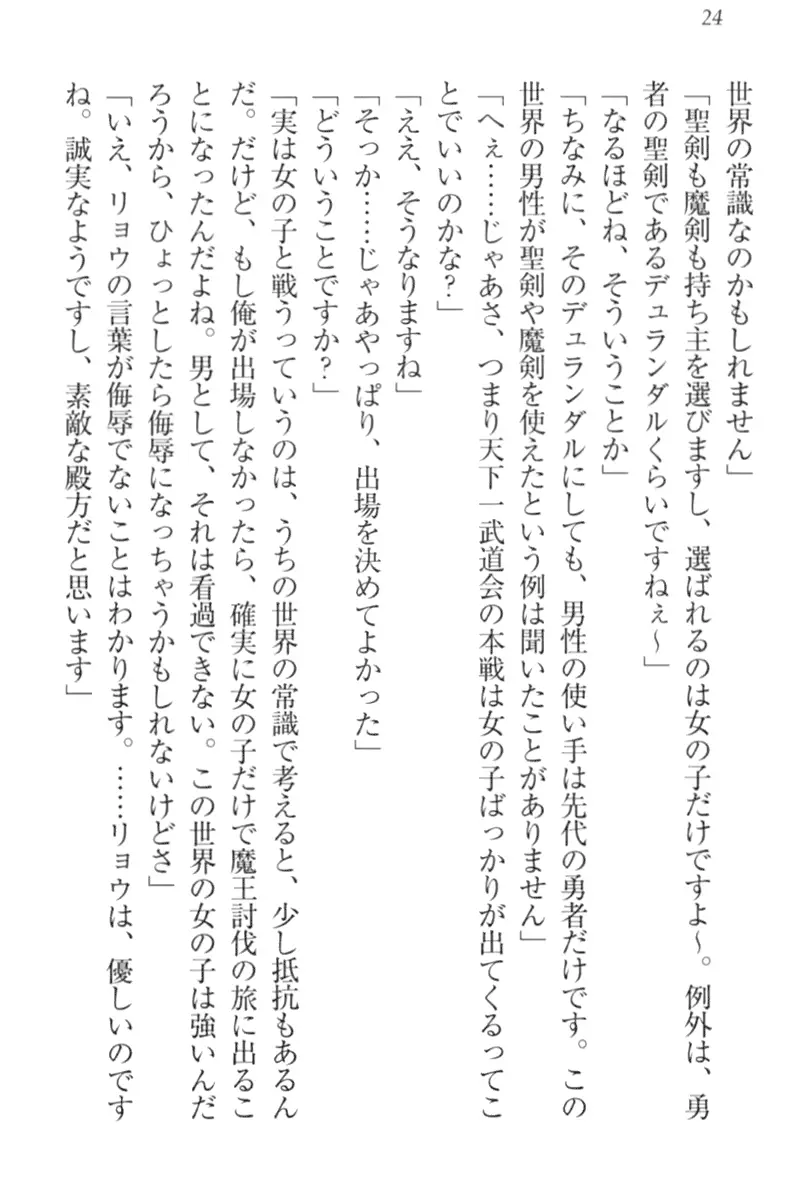 24
世界の常識なのかもしれません」
「聖剣も魔剣も持ち主を選びますし、選ばれるのは女の子だけですよ～。例外は、勇
者の聖剣であるデュランダルくらいですねぇ～」
「なるほどね、そういうことか」
「ちなみに、そのデュランダルにしても、男性の使い手は先代の勇者だけです。この
世界の男性が聖剣や魔剣を使えたという例は聞いたことがありません」
「へぇ……じゃあさ、つまり天下一武道会の本戦は女の子ばっかりが出てくるってこ
とでいいのかな？」
「ええ、そうなりますね」
「そっか……じゃあやっぱり、出場を決めてよかった」
「どういうことですか？」
「実は女の子と戦うっていうのは、うちの世界の常識で考えると、少し抵抗もあるん
だ。だけど、もし俺が出場しなかったら、確実に女の子だけで魔王討伐の旅に出るこ
とになったんだよね。男として、それは看過できない。この世界の女の子は強いんだ
ろうから、ひょっとしたら侮辱になっちゃうかもしれないけどさ」
「いえ、リョウの言葉が侮辱でないことはわかります。……リョウは、優しいのです
ね。誠実なようですし、素敵な殿方だと思います」